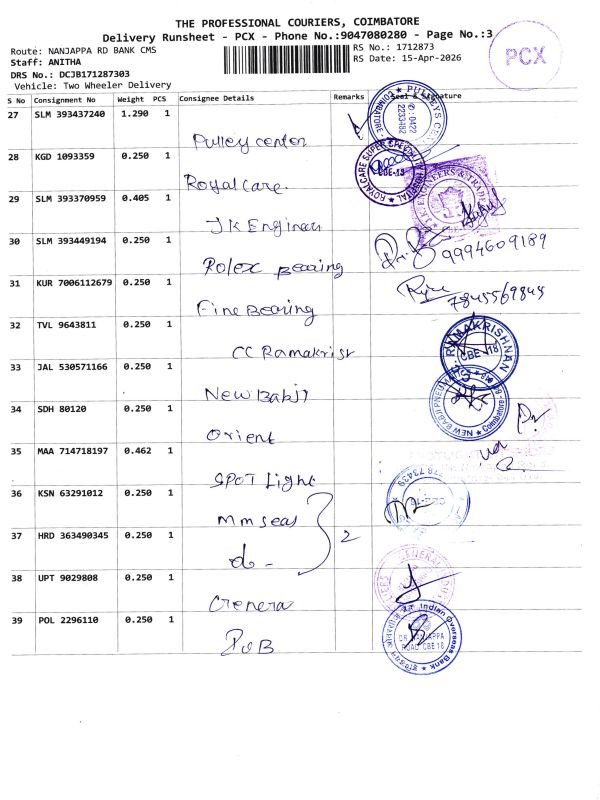 THE PROFESSIONAL COURIERS, COIMBATORE
Delivery Runsheet - PCX - Phone No.:9047080280 - Page No.:3
Route: NANJAPPA RD BANK CMS
Staff: ANITHA
DRS No.: DCJB171287303
Vehicle: Two Wheeler Delivery
RS No.: 1712873
RS Date: 15-Apr-2026
PCX
S No Consignment No Weight PCS Consignee Details Remarks Seal & Signature
27 SLM 393437240 1.290 1
Pulley center
28 KGD 1093359 0.250 1
Royal care.
29 SLM 393370959 0.405 1
JK Engineers
30 SLM 393449194 0.250 1
Rolex Bearing
9994609189
31 KUR 7006112679 0.250 1
Fine Bearing
7845569845
32 TVL 9643811 0.250 1
CC Ramakrist
33 JAL 530571166 0.250 1
New Babji
34 SDH 80120 0.250 1
Orient
35 MAA 714718197 0.462 1
SPOT light
36 KSN 63291012 0.250 1
mm seas
37 HRD 363490345 0.250 1
2
do -
38 UPT 9029808 0.250 1
39 POL 2296110 0.250 1
PULLEYS
COIMBATORE
0422
2233482
ROYALCARE SUPER SPECIALITY
CBE-18
J.K. ENGINEERS & TRADERS
RAMAKRISHNAN
CBE - 18
NEW BABJI PNEUMA
Coimbatore
78 73439
Indian Overseas Bank
DR NANJAPPA
ROAD, CBE 18